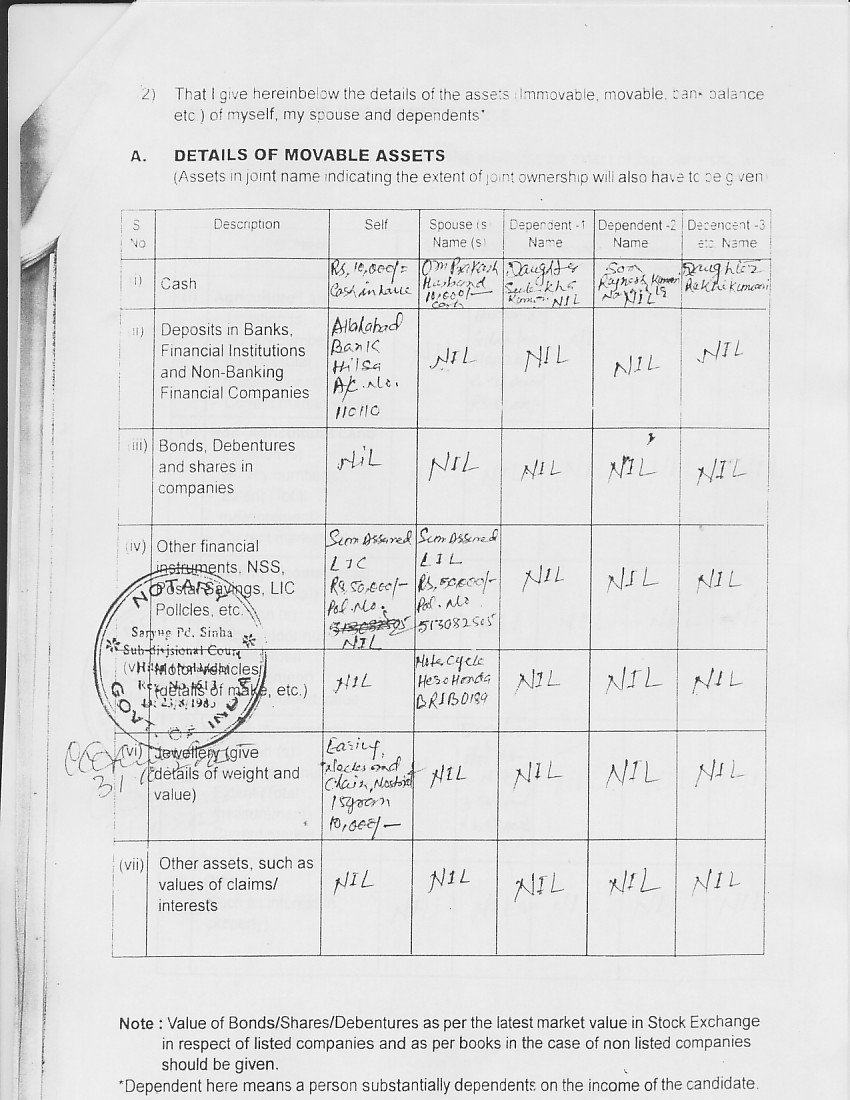 2) That I give hereinbelow the details of the assets (Immovable, movable, bank balance
etc.) of myself, my spouse and dependents*
A. DETAILS OF MOVABLE ASSETS
(Assets in joint name indicating the extent of joint ownership will also have to be given
S No Description Self Spouse (s) Name (s) Dependent -1 Name Dependent -2 Name Dependent -3 etc. Name
i) Cash
Rs, 10,000/=
Cash in
Om Prakash
Husband
10,000/-
Cash
Daughter
Kumari NIL
Son
NIL
Daughter
Kumari
ii) Deposits in Banks,
Financial Institutions
and Non-Banking
Financial Companies
Allahabad
Bank
Hilsa
A/c. No.
110110
NIL NIL NIL NIL
iii) Bonds, Debentures
and shares in
companies
NiL NIL NIL NIL NIL
(iv) Other financial
instruments, NSS,
Postal Savings, LIC
Policies, etc.
Sum Assured
LIC
Rs 50,000/-
Pol. No.
513082505
NIL
Sum Assured
LIL
Rs, 50,000/-
Pol. No
513082505
NIL NIL NIL
(v) Motor Vehicles
(details of make, etc.)
NIL
Moter Cycle
Hero Honda
NIL NIL NIL
NOTARY
Saryug Pd. Sinha
Sub-divisional Court
GOVT. OF
(vi) Jewellery (give
details of weight and
value)
Earing,
Chain,
15gram
10,000/-
NIL NIL NIL NIL
(vii) Other assets, such as
values of claims/
interests
NIL NIL NIL NIL NIL
Note : Value of Bonds/Shares/Debentures as per the latest market value in Stock Exchange
in respect of listed companies and as per books in the case of non listed companies
should be given.
*Dependent here means a person substantially dependents on the income of the candidate.